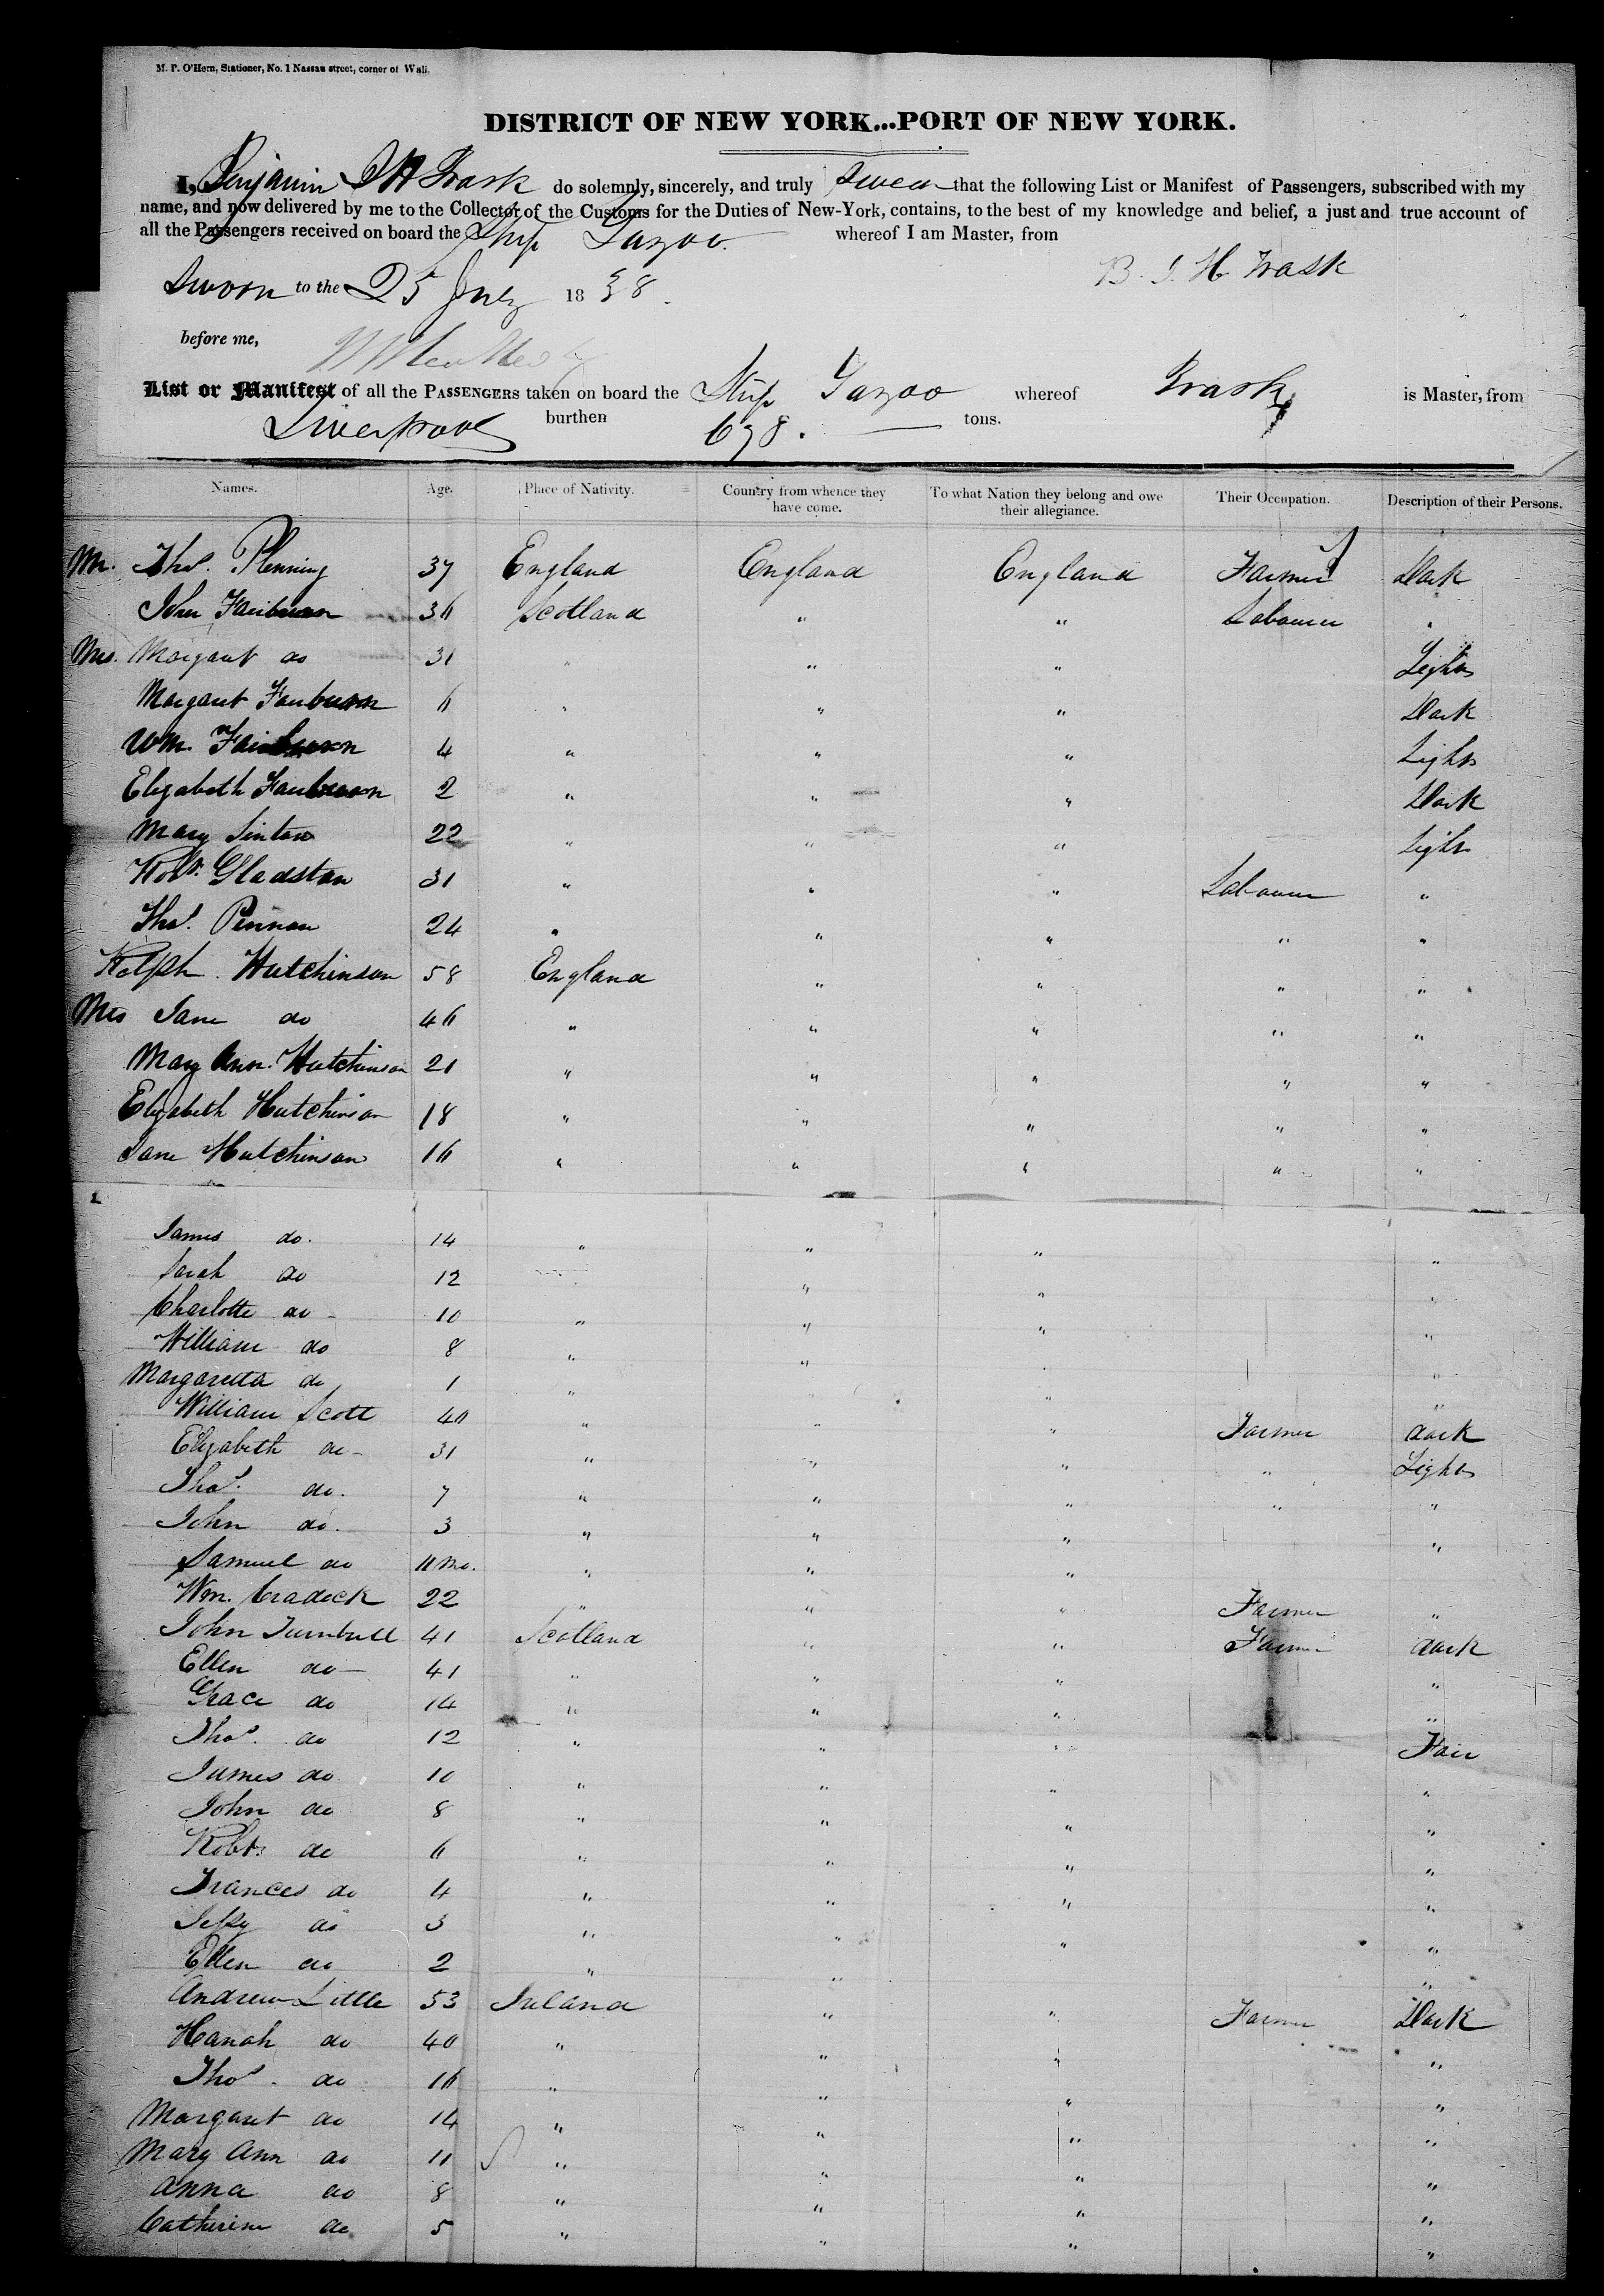 M. P. O'Hern, Stationer, No. 1 Nassau street, corner of Wall.
DISTRICT OF NEW YORK...PORT OF NEW YORK.
I, Benjamin I H Trask do solemnly, sincerely, and truly swear that the following List or Manifest of Passengers, subscribed with my
name, and now delivered by me to the Collector of the Customs for the Duties of New-York, contains, to the best of my knowledge and belief, a just and true account of
all the Passengers received on board the Ship Yazoo. whereof I am Master, from
B. I. H. Trask
Sworn to the 25 July 1838.
before me,
List or Manifest of all the PASSENGERS taken on board the Ship Yazoo whereof Trask is Master, from
Liverpool burthen 678. tons.
Names. Age. Place of Nativity. Country from whence they have come. To what Nation they belong and owe their allegiance. Their Occupation. Description of their Persons.
Mr. Thos. Plenning 37 England England England Farmer Dark
John Fairburn 36 Scotland " " Labourer "
Mrs. Margaret do 31 " " " Light
Margaret Fairburn 6 " " " Dark
Wm. Fairburn 4 " " " Light
Elizabeth Fairburn 2 " " " Dark
Mary Sinton 22 " " " Light
Robt. Gladston 31 " " " Labourer "
Thos. Pennan 24 " " " " "
Ralph Hutchinson 58 England " " " "
Mrs Jane do 46 " " " " "
Mary Ann Hutchinson 21 " " " " "
Elizabeth Hutchinson 18 " " " " "
Jane Hutchinson 16 " " " " "
James do. 14 " " " "
Sarah do 12 " " "
Charlotte do 10 " " " "
William do 8 " " "
Margaretta do 1 " " " "
William Scott 40 " " " Farmer dark
Elizabeth do 31 " " " " Light
Thos. do. 7 " " " " "
John do. 3 " " " "
Samuel do 11 mo. " " "
Wm. Cradock 22 " " " Farmer "
John Turnbull 41 Scotland " " Farmer dark
Ellen do 41 " " " "
Grace do 14 " " " "
Thos. do 12 " " " Fair
James do 10 " " " "
John do 8 " " " "
Robt. do 6 " " " "
Frances do 4 " " " "
do 3 " " " "
Ellen do 2 " " "
Andrew Little 53 Ireland " " Farmer Dark
Hanah do 40 " " " "
Thos. do 16 " " " "
Margaret do 14 " " " "
Mary Ann do 11 " " " "
Anna do 8 " " " "
Catherine do 5 " " " "